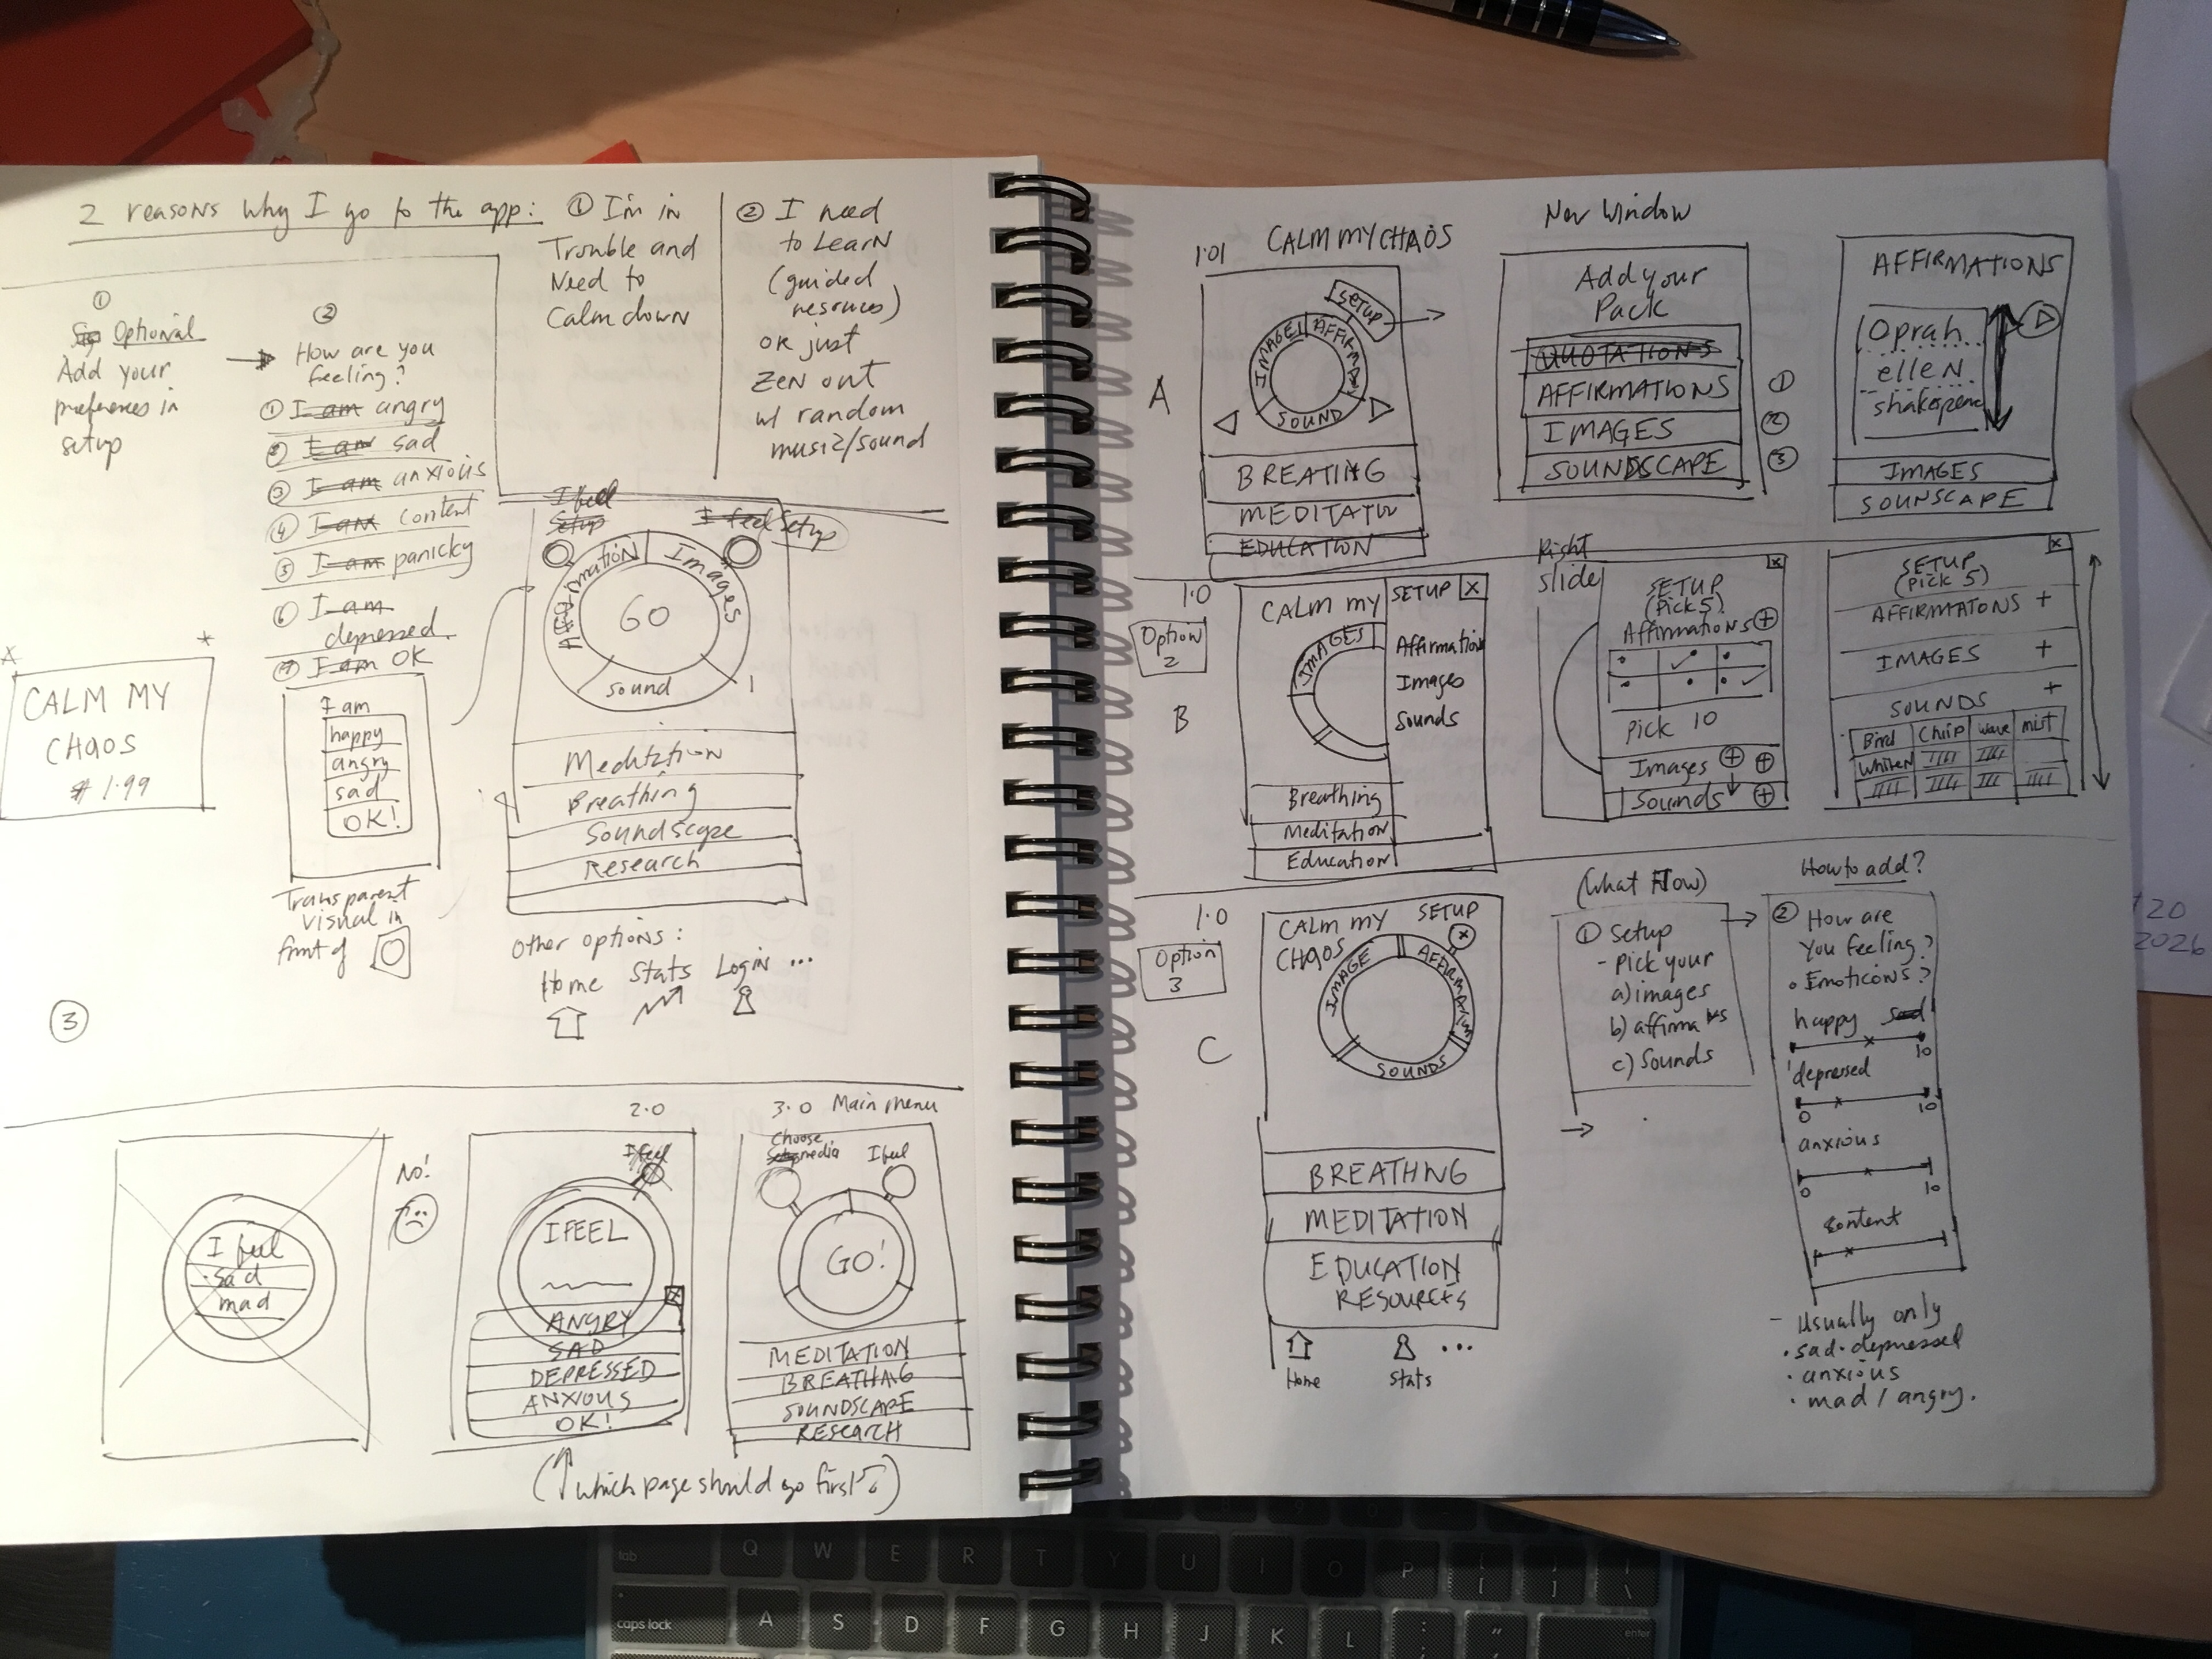 2 reasons why I go to the app:
① I'm in
Trouble and
Need to
Calm down
② I need
to LearN
(guided
resources)
OR just
ZEN out
w/ random
music/sound
①
Optional
Add your
preferences in
setup
②
How are you
feeling?
① I am angry
② I am sad
③ I am anxious
④ I am content
⑤ I am panicky
⑥ I am
depressed
⑦ I am OK
CALM MY
CHAOS
$1.99
I am
happy
angry
sad
OK!
Transparent
visual in
front of
I feel
Setup
I feel Setup
Affirmation
Images
GO
sound
Meditation
Breathing
Soundscape
Research
Other options:
Home Stats Login ...
③
I feel
sad
mad
NO!
2.0
I feel
I FEEL
X
ANGRY
SAD
DEPRESSED
ANXIOUS
OK!
3.0 Main menu
Choose
Setup media
I feel
GO!
MEDITATION
BREATHING
SOUNDSCAPE
RESEARCH
(↑ which page should go first?)
1.01
CALM MY CHAOS
SETUP
A
IMAGE
AFFIRMA
SOUND
BREATING
MEDITATIN
EDUCATION
New Window
Add your
Pack
QUOTATIONS
AFFIRMATIONS ①
IMAGES ②
SOUNDSCAPE ③
AFFIRMATIONS
Oprah
elleN
shakespeare
IMAGES
SOUNSCAPE
1.0
Option
2
B
CALM MY
SETUP X
IMAGES
Affirmation
Images
Sounds
Breathing
Meditation
Education
Right
slide
X
SETUP
(Pick 5)
Affirmations +
Pick 10
Images + +
Sounds +
X
SETUP
(Pick 5)
AFFIRMATONS +
IMAGES +
SOUNDS +
Bird Chirp wave mist
1.0
Option
3
C
CALM MY
CHAOS
SETUP
X
IMAGE
AFFIRMATIS
SOUNDS
BREATHNG
MEDITATION
EDUCATION
RESOURCES
Home Stats ...
(What Flow)
① Setup
- Pick your
a) images
b)
c) Sounds
How to add?
② How are
You feeling?
• Emoticons?
happy sad
10
depressed
0 10
anxious
0 10
content
- Usually only
• sad-depressed
• anxious
• mad / angry.
2026
tab Q W E R T Y U I O P
caps lock A S D F G H J K L
enter